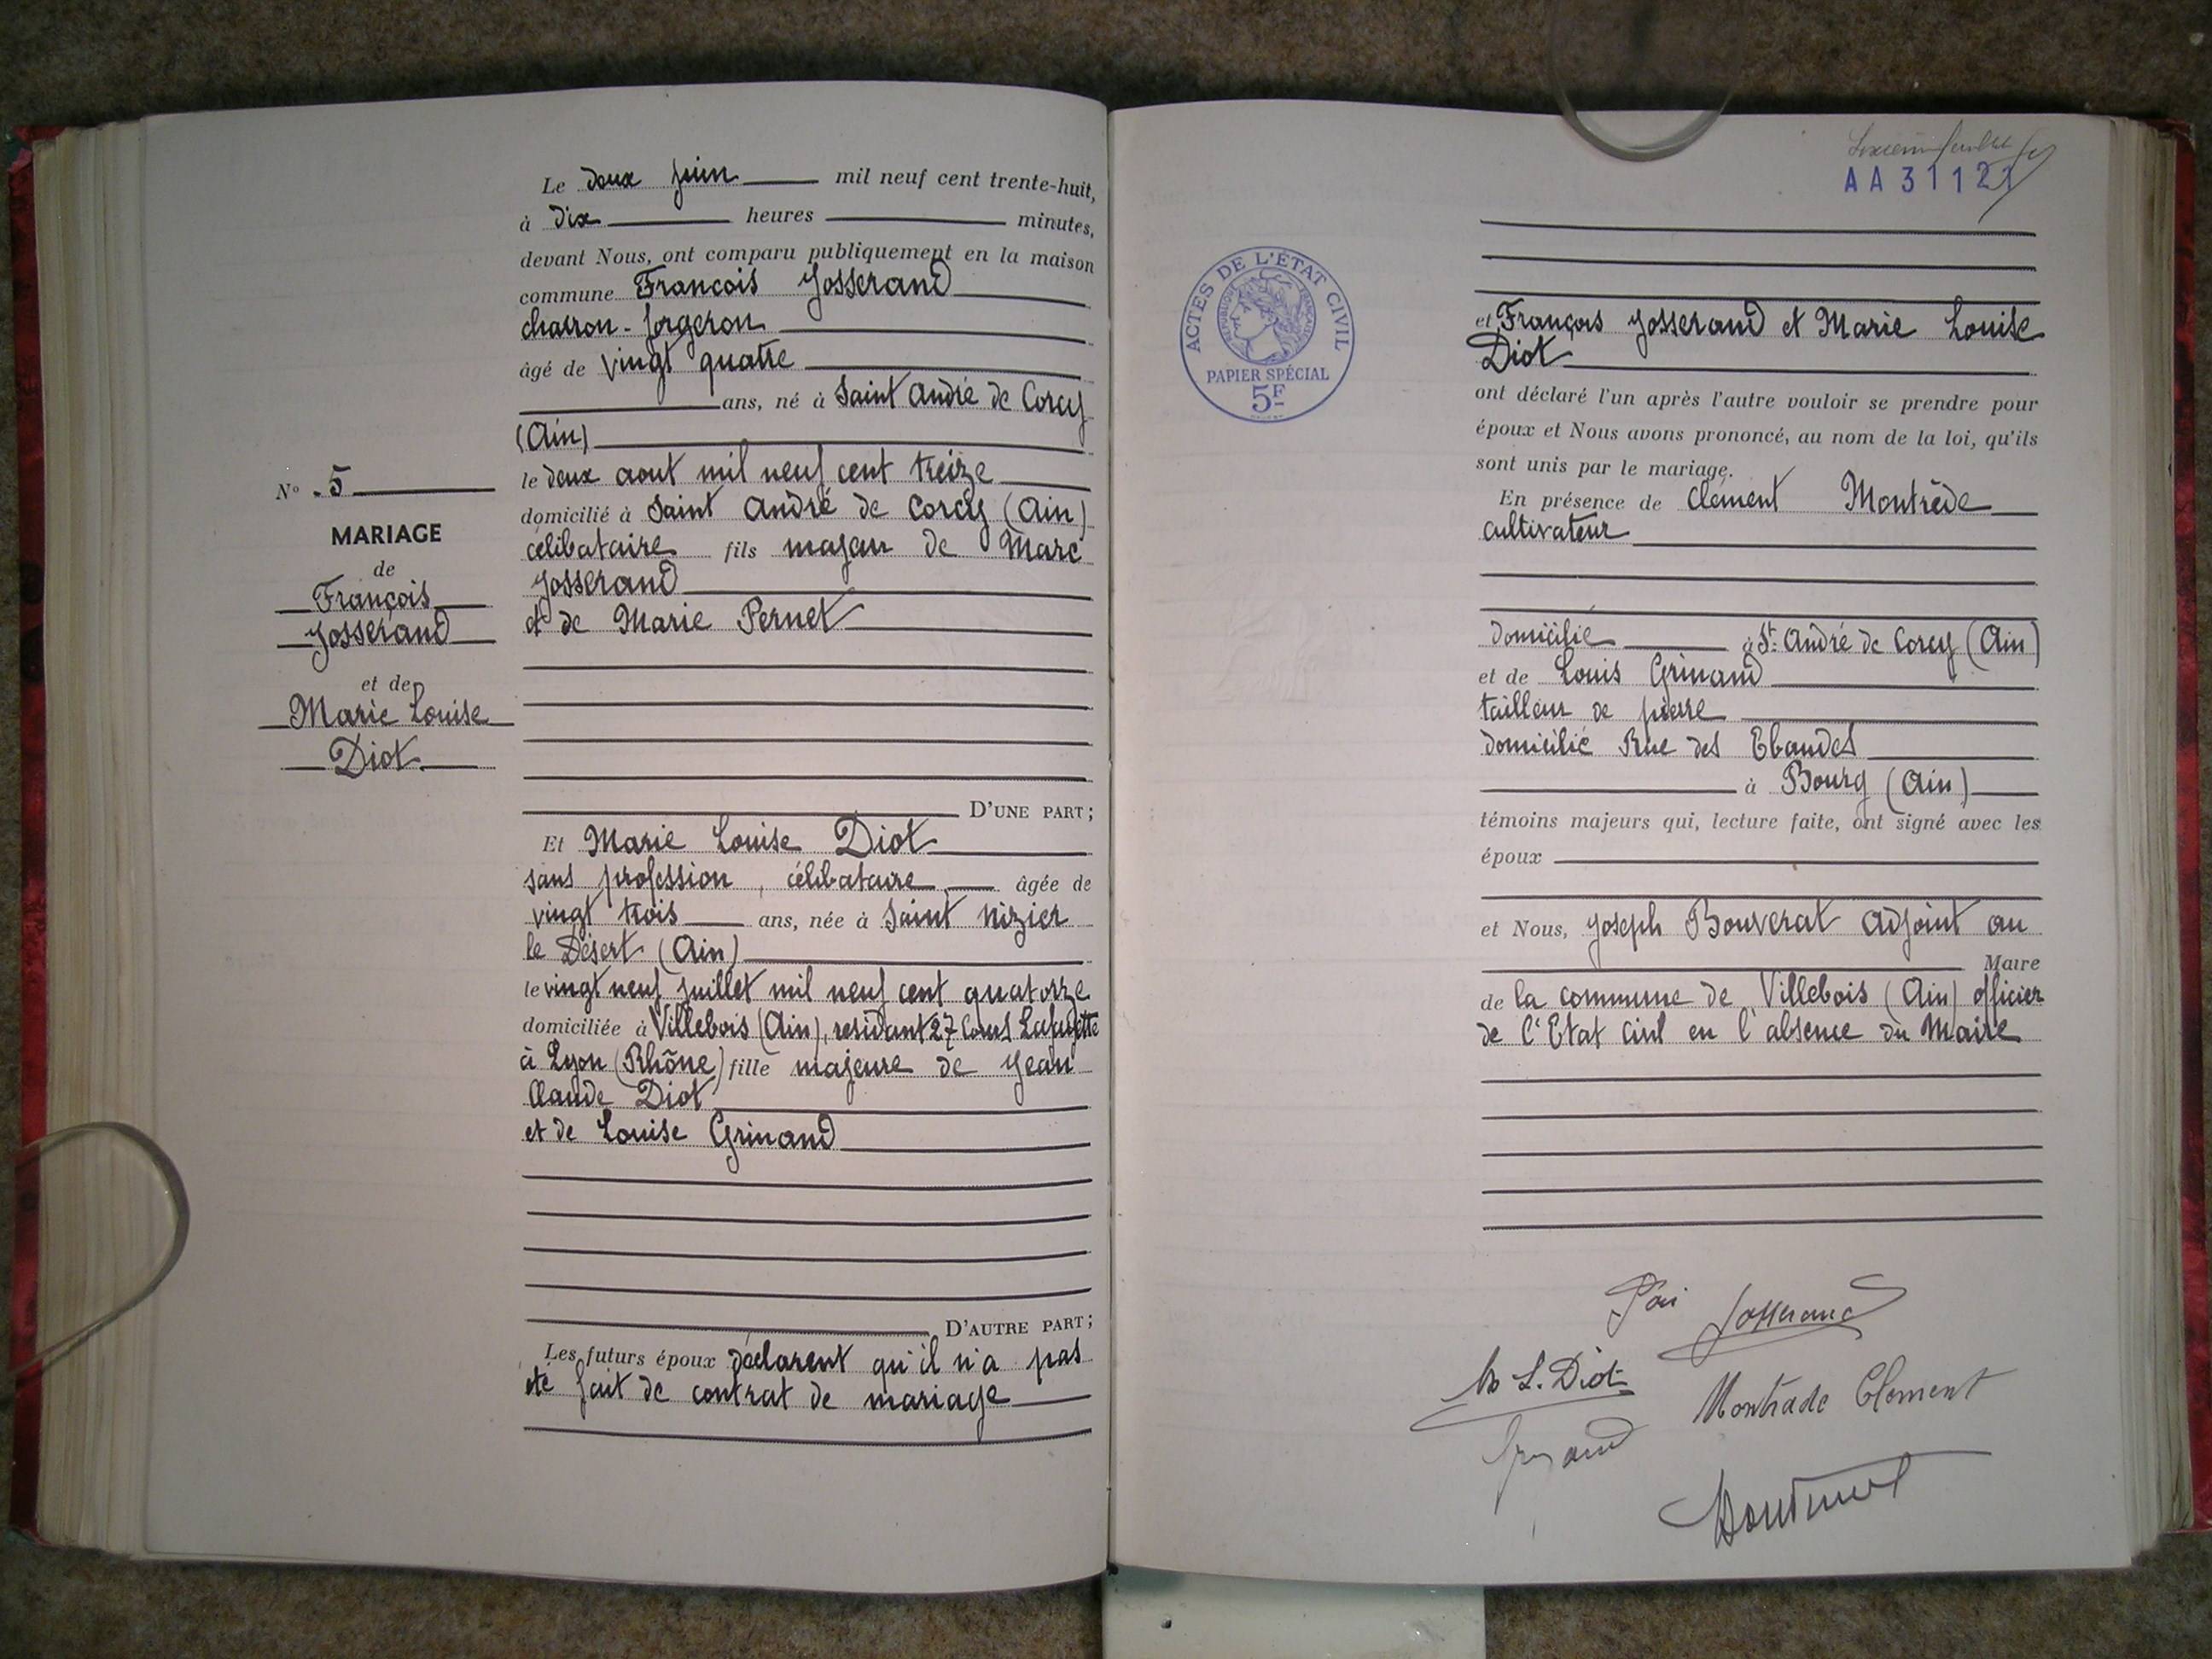 Le deux juin mil neuf cent trente-huit,
à dix heures minutes,
devant Nous, ont comparu publiquement en la maison
commune François Josserand
charron-forgeron
âgé de vingt quatre
ans, né à Saint André de Corcy
(Ain)
le deux aout mil neuf cent treize
domicilié à Saint André de Corcy (Ain)
célibataire fils majeur de Marc
Josserand
et de Marie Pernet
D'UNE PART;
Et Marie Louise Diot
sans profession, célibataire âgée de
vingt trois ans, née à Saint Nizier
le Désert (Ain)
le vingt neuf juillet mil neuf cent quatorze
domiciliée à Villebois (Ain), résidant 27 Cours Lafayette
à Lyon (Rhône) fille majeure de Jean
Claude Diot
et de Louise Grinand
D'AUTRE PART;
Les futurs époux déclarent qu'il n'a pas
été fait de contrat de mariage
N° 5
MARIAGE
de
François
Josserand
et de
Marie Louise
Diot
AA 31121
ACTES DE L'ÉTAT CIVIL
RÉPUBLIQUE FRANÇAISE
PAPIER SPÉCIAL
5F
et François Josserand et Marie Louise
Diot
ont déclaré l'un après l'autre vouloir se prendre pour
époux et Nous avons prononcé, au nom de la loi, qu'ils
sont unis par le mariage.
En présence de Clément Montrède
cultivateur
domicilié à St. André de Corcy (Ain)
et de Louis Grinand
tailleur de pierre
domicilié Rue des Ebaudes
à Bourg (Ain)
témoins majeurs qui, lecture faite, ont signé avec les
époux
et Nous, Joseph Bouverat adjoint au
Maire
de la commune de Villebois (Ain) officier
de l'Etat civil en l'absence du Maire
Josserand
M L. Diot
Montrade Clement